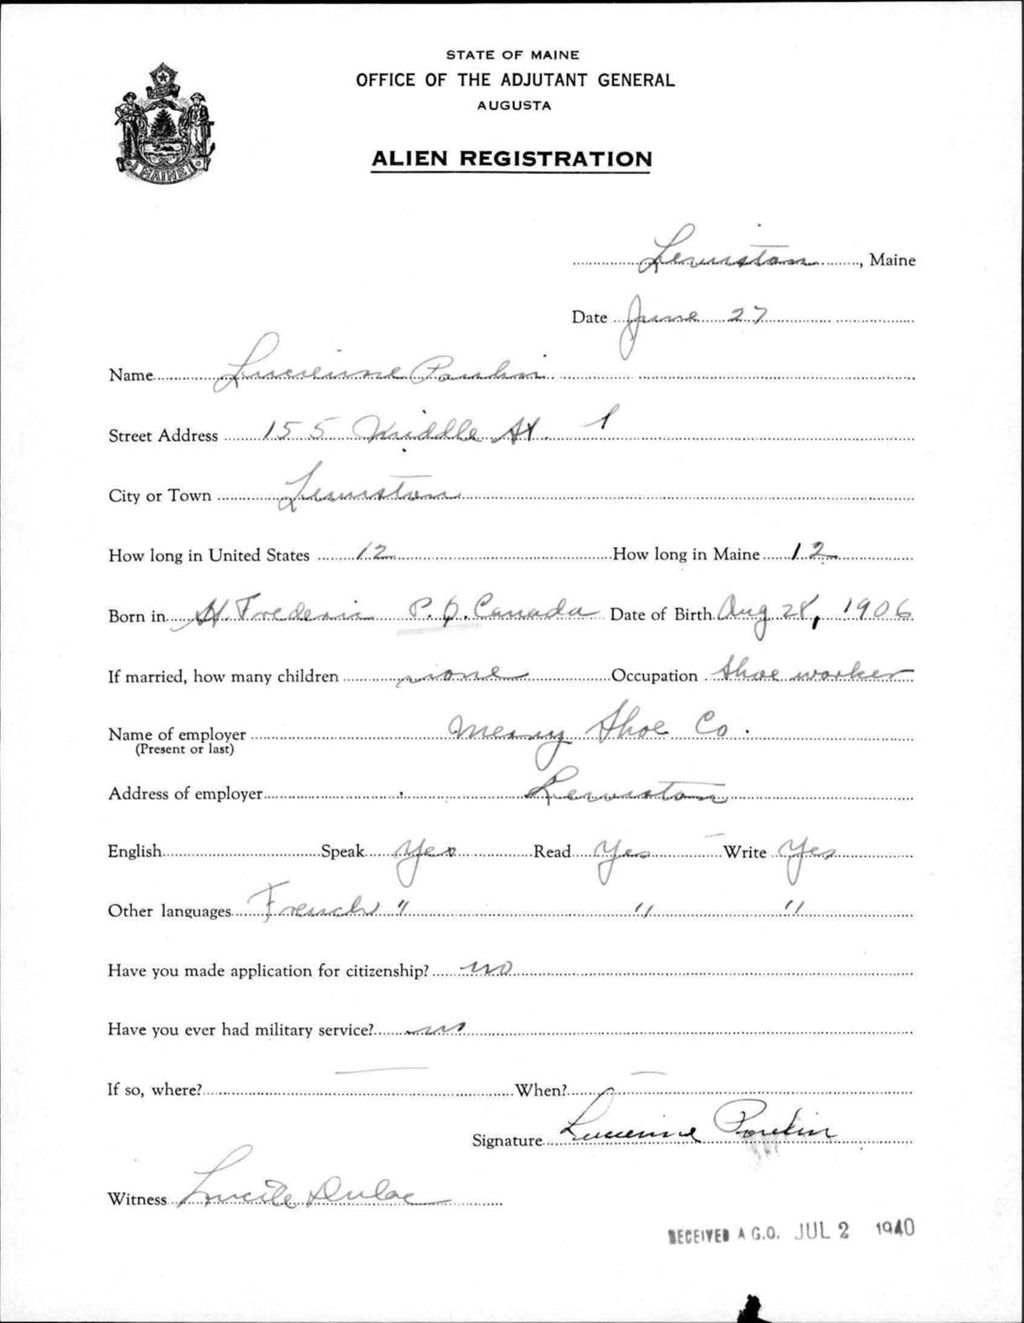 STATE OF MAINE
OFFICE OF THE ADJUTANT GENERAL
AUGUSTA
MAINE
ALIEN REGISTRATION
Lewiston, Maine
Date June 27
Name Lucienne Poulin
Street Address 155 Middle St. 1
City or Town Lewiston
How long in United States 12 How long in Maine 12
Born in St. Frederic P.Q. Canada Date of Birth Aug 28, 1906
If married, how many children none Occupation Shoe worker
Name of employer Shoe Co.
(Present or last)
Address of employer Lewiston
English Speak Yes Read Yes Write Yes
Other languages French " " "
Have you made application for citizenship? no
Have you ever had military service? no
If so, where? — When? —
Signature Lucienne Poulin
Witness Lucile Dulac
RECEIVED A.G.O. JUL 2 1940